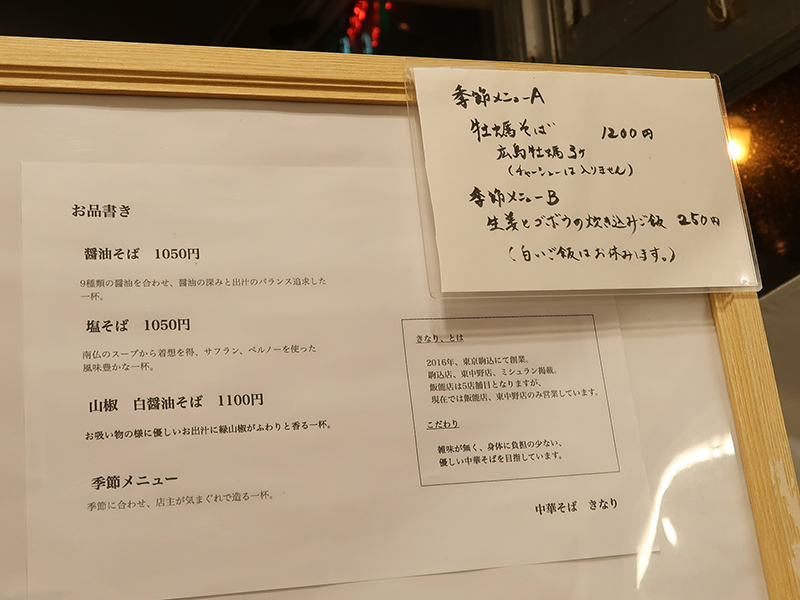 季節メニューA
牡蠣そば 1200円
広島牡蠣3ヶ
(チャーシューは入りません)
季節メニューB
生姜とゴボウの炊き込みご飯 250円
(白いご飯はお休みます。)
お品書き
醤油そば 1050円
9種類の醤油を合わせ、醤油の深みと出汁のバランス追求した
一杯。
塩そば 1050円
南仏のスープから着想を得、サフラン、ペルノーを使った
風味豊かな一杯。
山椒 白醤油そば 1100円
お吸い物の様に優しいお出汁に緑山椒がふわりと香る一杯。
季節メニュー
季節に合わせ、店主が気まぐれで造る一杯。
きなり、とは
2016年、東京駒込にて創業。
駒込店、東中野店、ミシュラン掲載。
飯能店は5店舗目となりますが、
現在では飯能店、東中野店のみ営業しています。
こだわり
雑味が無く、身体に負担の少ない、
優しい中華そばを目指しています。
中華そば きなり